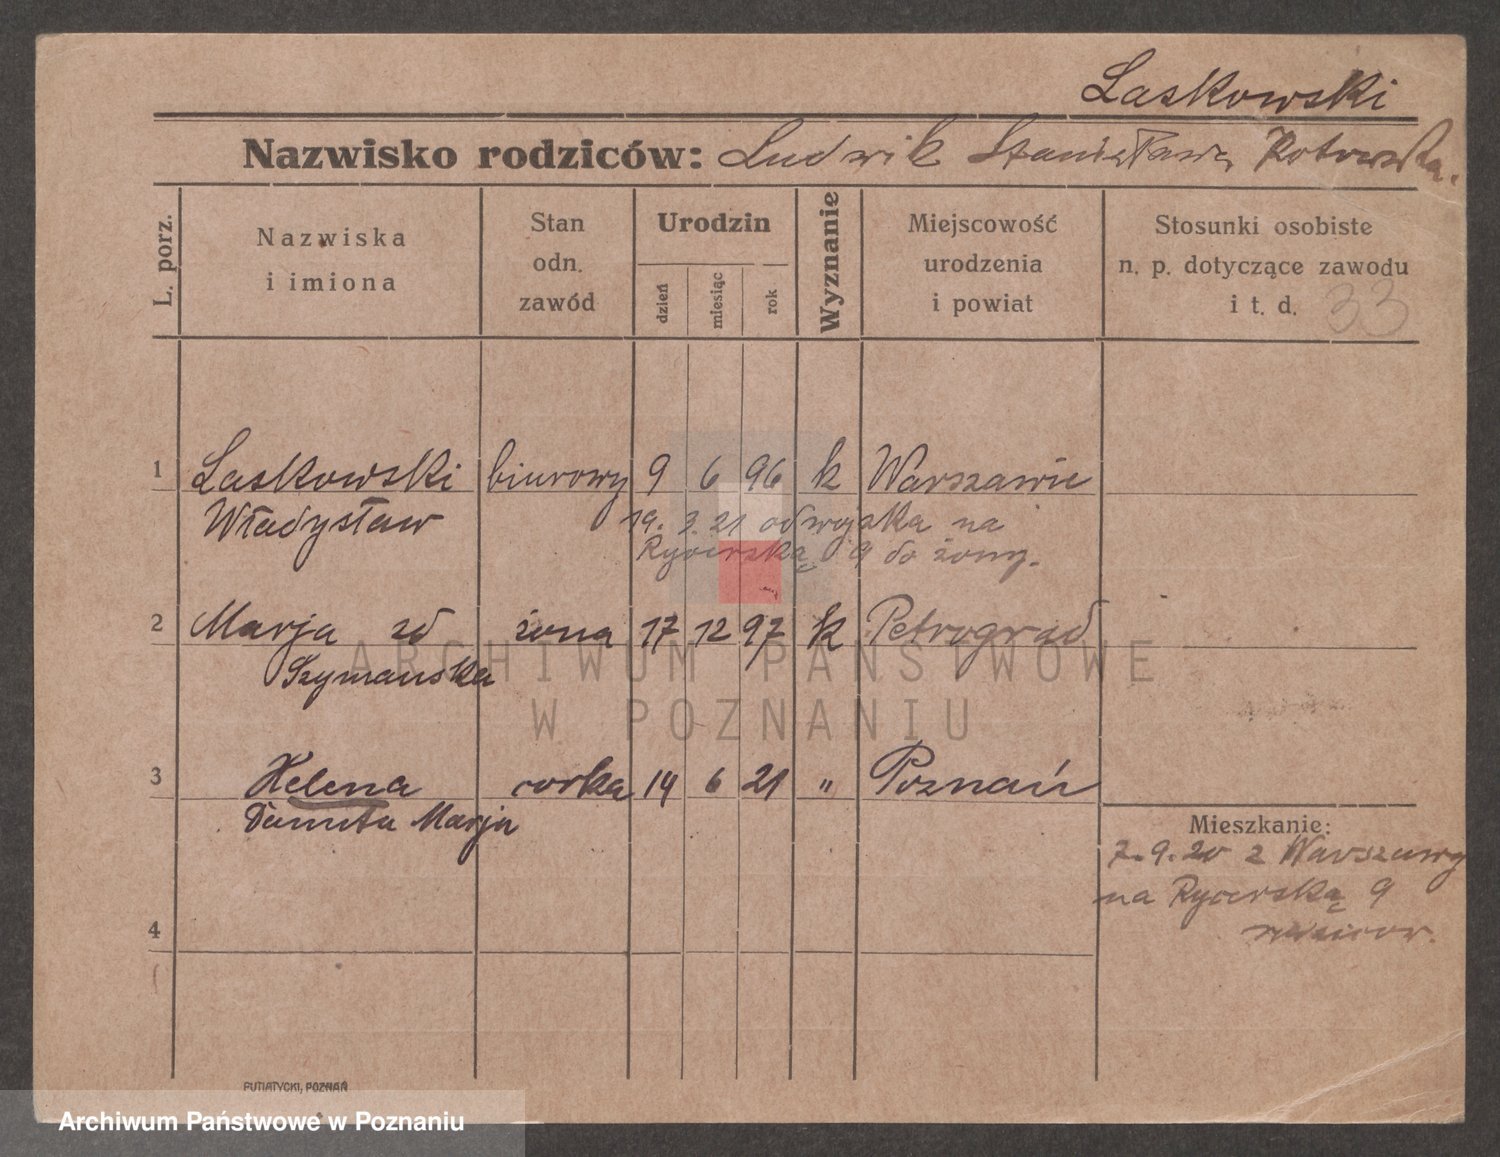 Laskowski
Nazwisko rodziców: Ludwik Stanisława Kotowska.
L. porz.
Nazwiska
i imiona
Stan
odn.
zawód
Urodzin
dzień
miesiąc
rok
Wyznanie
Miejscowość
urodzenia
i powiat
Stosunki osobiste
n. p. dotyczące zawodu
i t. d. 33
1 Laskowski biurowy 9 6 96 k Warszawie
Władysław 19. 3. 21 od wojska na
Rycerską 9 do żony.
2 Marja zd żona 17 12 97 k Petrograd
Szymanska
ARCHIWUM PAŃSTWOWE
W POZNANIU
3 Helena corka 14 6 21 " Poznań
Danuta Marja
Mieszkanie:
7.9.20 z Warszawy
na Rycerską 9
4
PUTIATYCKI, POZNAŃ
Archiwum Państwowe w Poznaniu